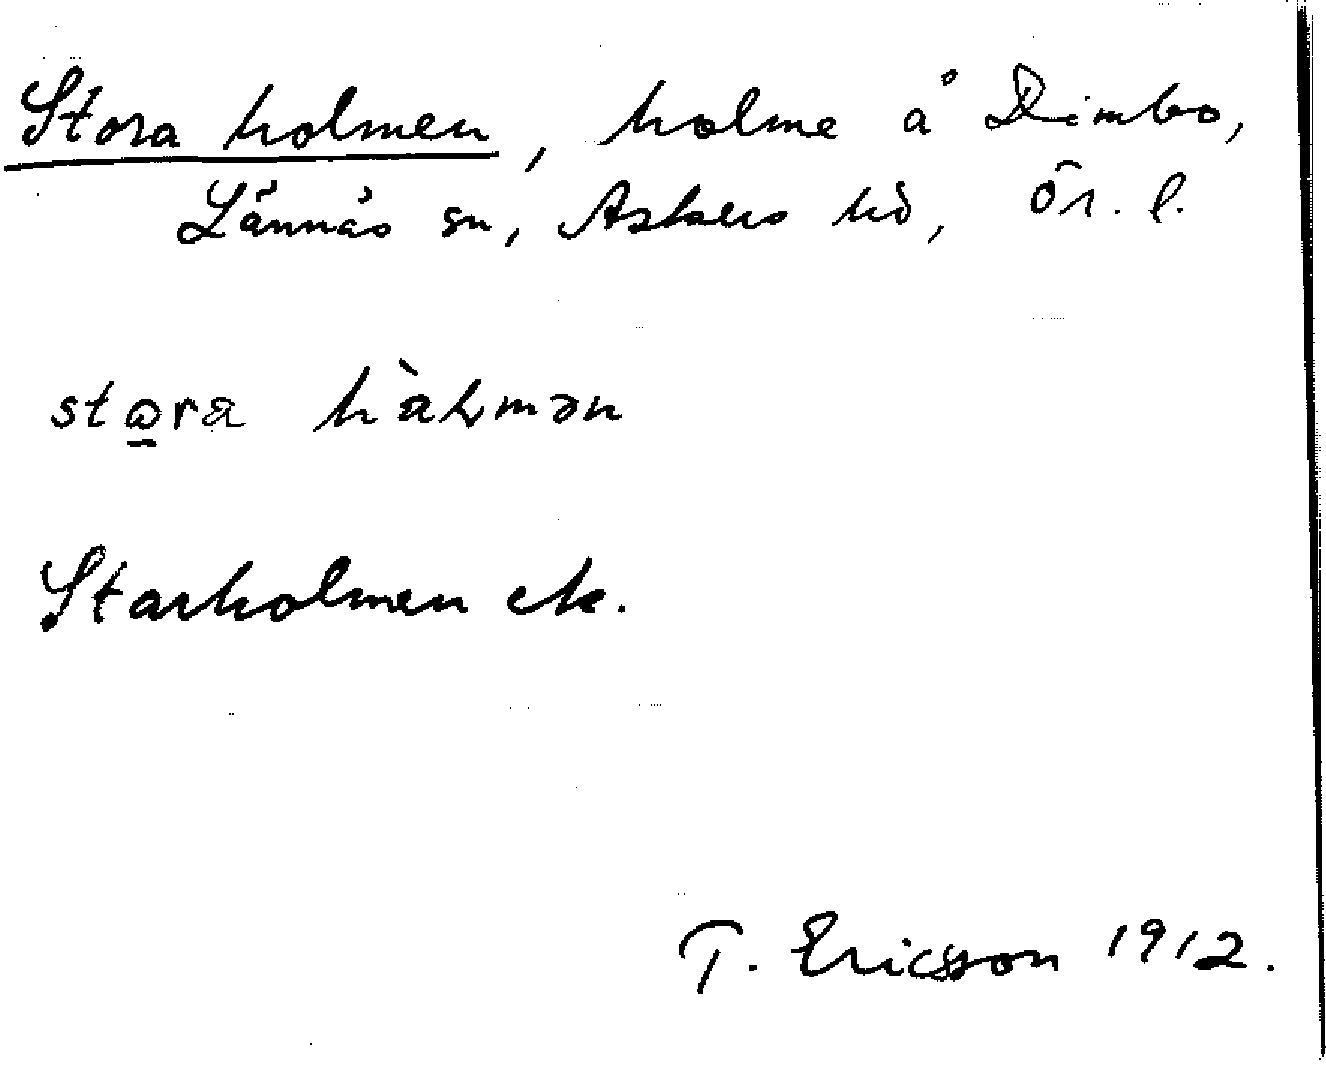 Stora holmen, holme å Dimbo,
Lännäs sn, Askers hd, Ör. l.
stora hàlmən
Starholmen ek.
T. Ericsson 1912.